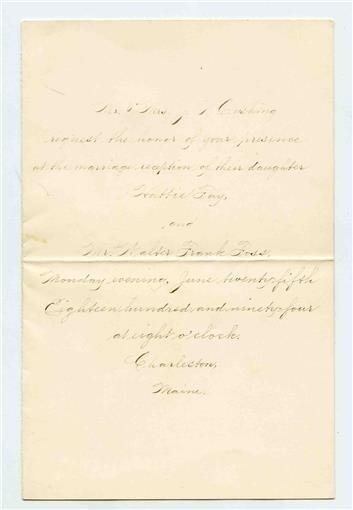 Mr. & Mrs. Cushing
request the honor of your presence
at the marriage reception of their daughter
Hattie Fay,
and
Mr. Walter Frank Foss,
Monday evening, June twenty-fifth
Eighteen hundred and ninety-four
at eight o'clock.
Charleston,
Maine.